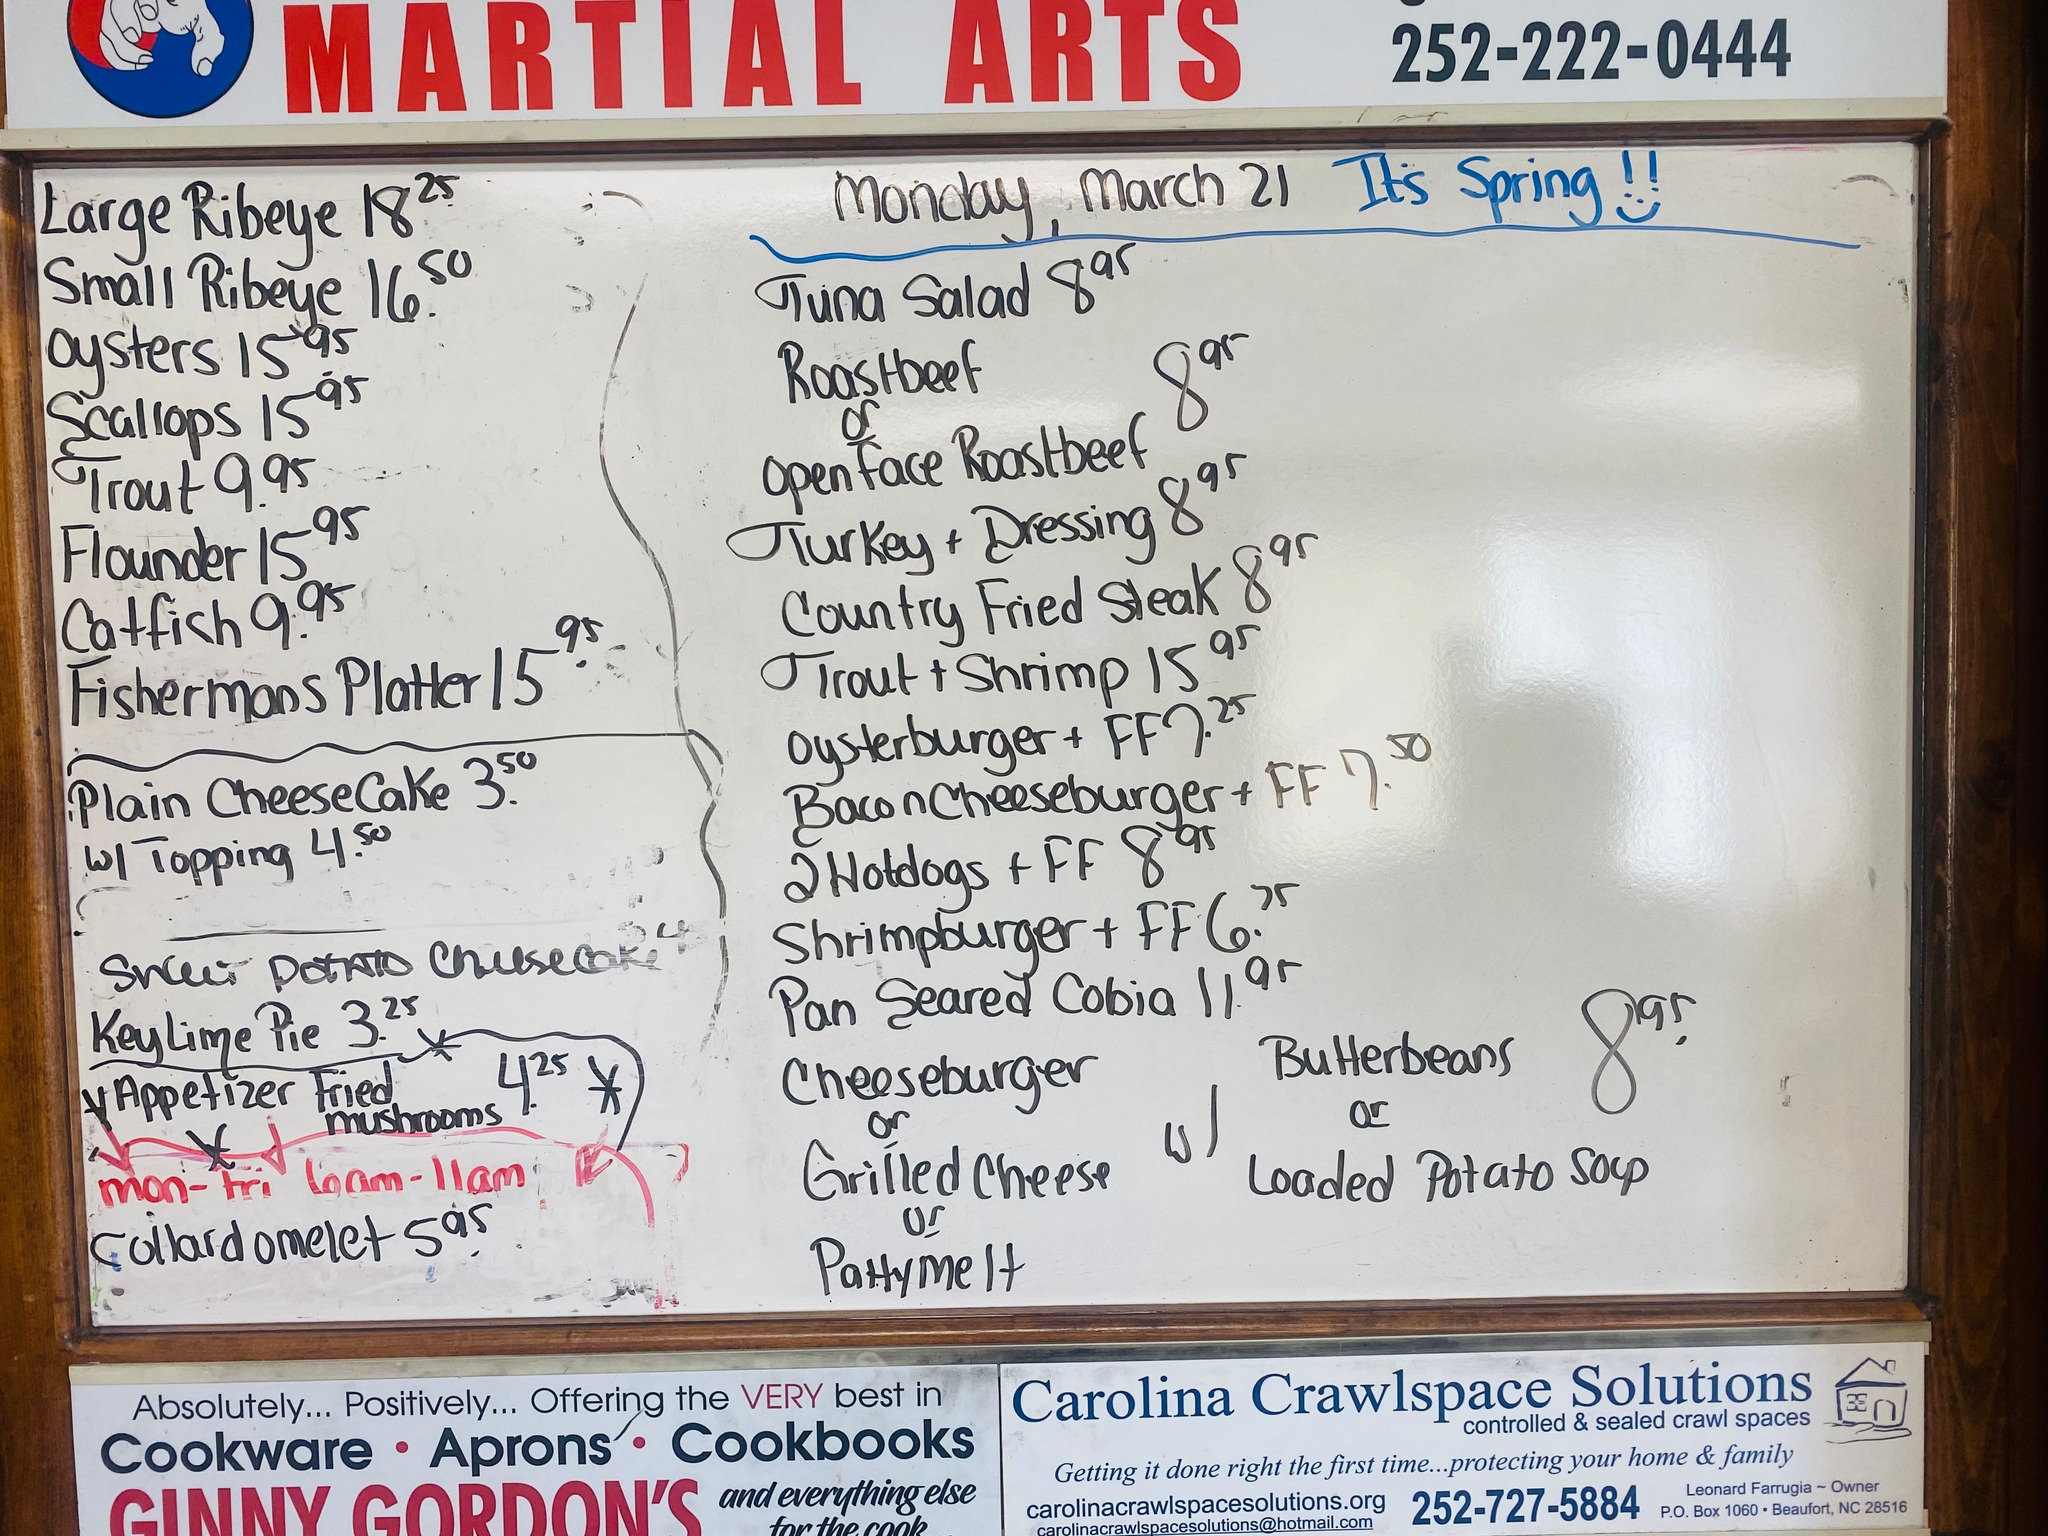 MARTIAL ARTS
252-222-0444
Large Ribeye 18 25
Small Ribeye 16.50
Oysters 15 95
Scallops 15 95
Trout 9.95
Flounder 15 95
Catfish 9.95
Fishermans Platter 15 95
Plain CheeseCake 3.50
w/ Topping 4.50
Sweet Potato Cheesecake
Key Lime Pie 3.25
Appetizer Fried mushrooms 4.25
mon-fri 6am-11am
Collard omelet 5 95
Monday, March 21 It's Spring!!
Tuna Salad 8 95
Roastbeef
or
open face Roastbeef 8 95
Turkey + Dressing 8 95
Country Fried Steak 8 95
Trout + Shrimp 15 95
Oysterburger + FF 7.25
Bacon Cheeseburger + FF 7.50
2 Hotdogs + FF 8 95
Shrimpburger + FF 6.75
Pan Seared Cobia 11.95
Cheeseburger
or
Grilled Cheese
or
Pattymelt
w/
Butterbeans
or
Loaded Potato Soup
8 95
Absolutely... Positively... Offering the VERY best in
Cookware • Aprons • Cookbooks
GINNY GORDON'S
and everything else
for the cook...
Carolina Crawlspace Solutions
controlled & sealed crawl spaces
Getting it done right the first time...protecting your home & family
carolinacrawlspacesolutions.org
carolinacrawlspacesolutions@hotmail.com
252-727-5884
Leonard Farrugia ~ Owner
P.O. Box 1060 • Beaufort, NC 28516